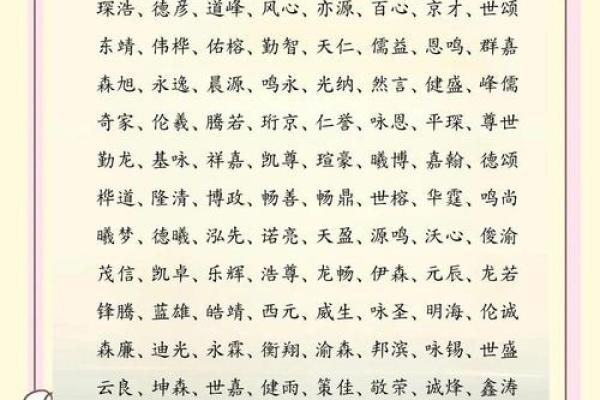 琛浩、德彦、道峰、风心、亦源、百心、京才、世颂
东靖、伟桦、佑榕、勤智、天仁、儒益、恩鸣、群嘉
森旭、永逸、晨源、鸣永、光纳、然言、健盛、峰儒
奇家、伦羲、腾若、珩京、仁誉、咏恩、平琛、尊世
勤龙、基咏、祥嘉、凯尊、瑄豪、曦博、嘉翰、德颂
桦道、隆清、博政、畅善、畅鼎、世榕、华霆、鸣尚
曦梦、德曦、泓先、诺亮、天盈、源鸣、沃心、俊渝
茂信、凯卓、乐辉、浩尊、龙畅、伊森、元辰、龙若
锋腾、蓝雄、皓靖、西元、威生、咏圣、明海、伦诚
森廉、迪光、永霖、衡翔、渝森、邦滨、咏锡、世盛
云良、坤森、世嘉、健雨、策佳、敬荣、诚烽、鑫涛